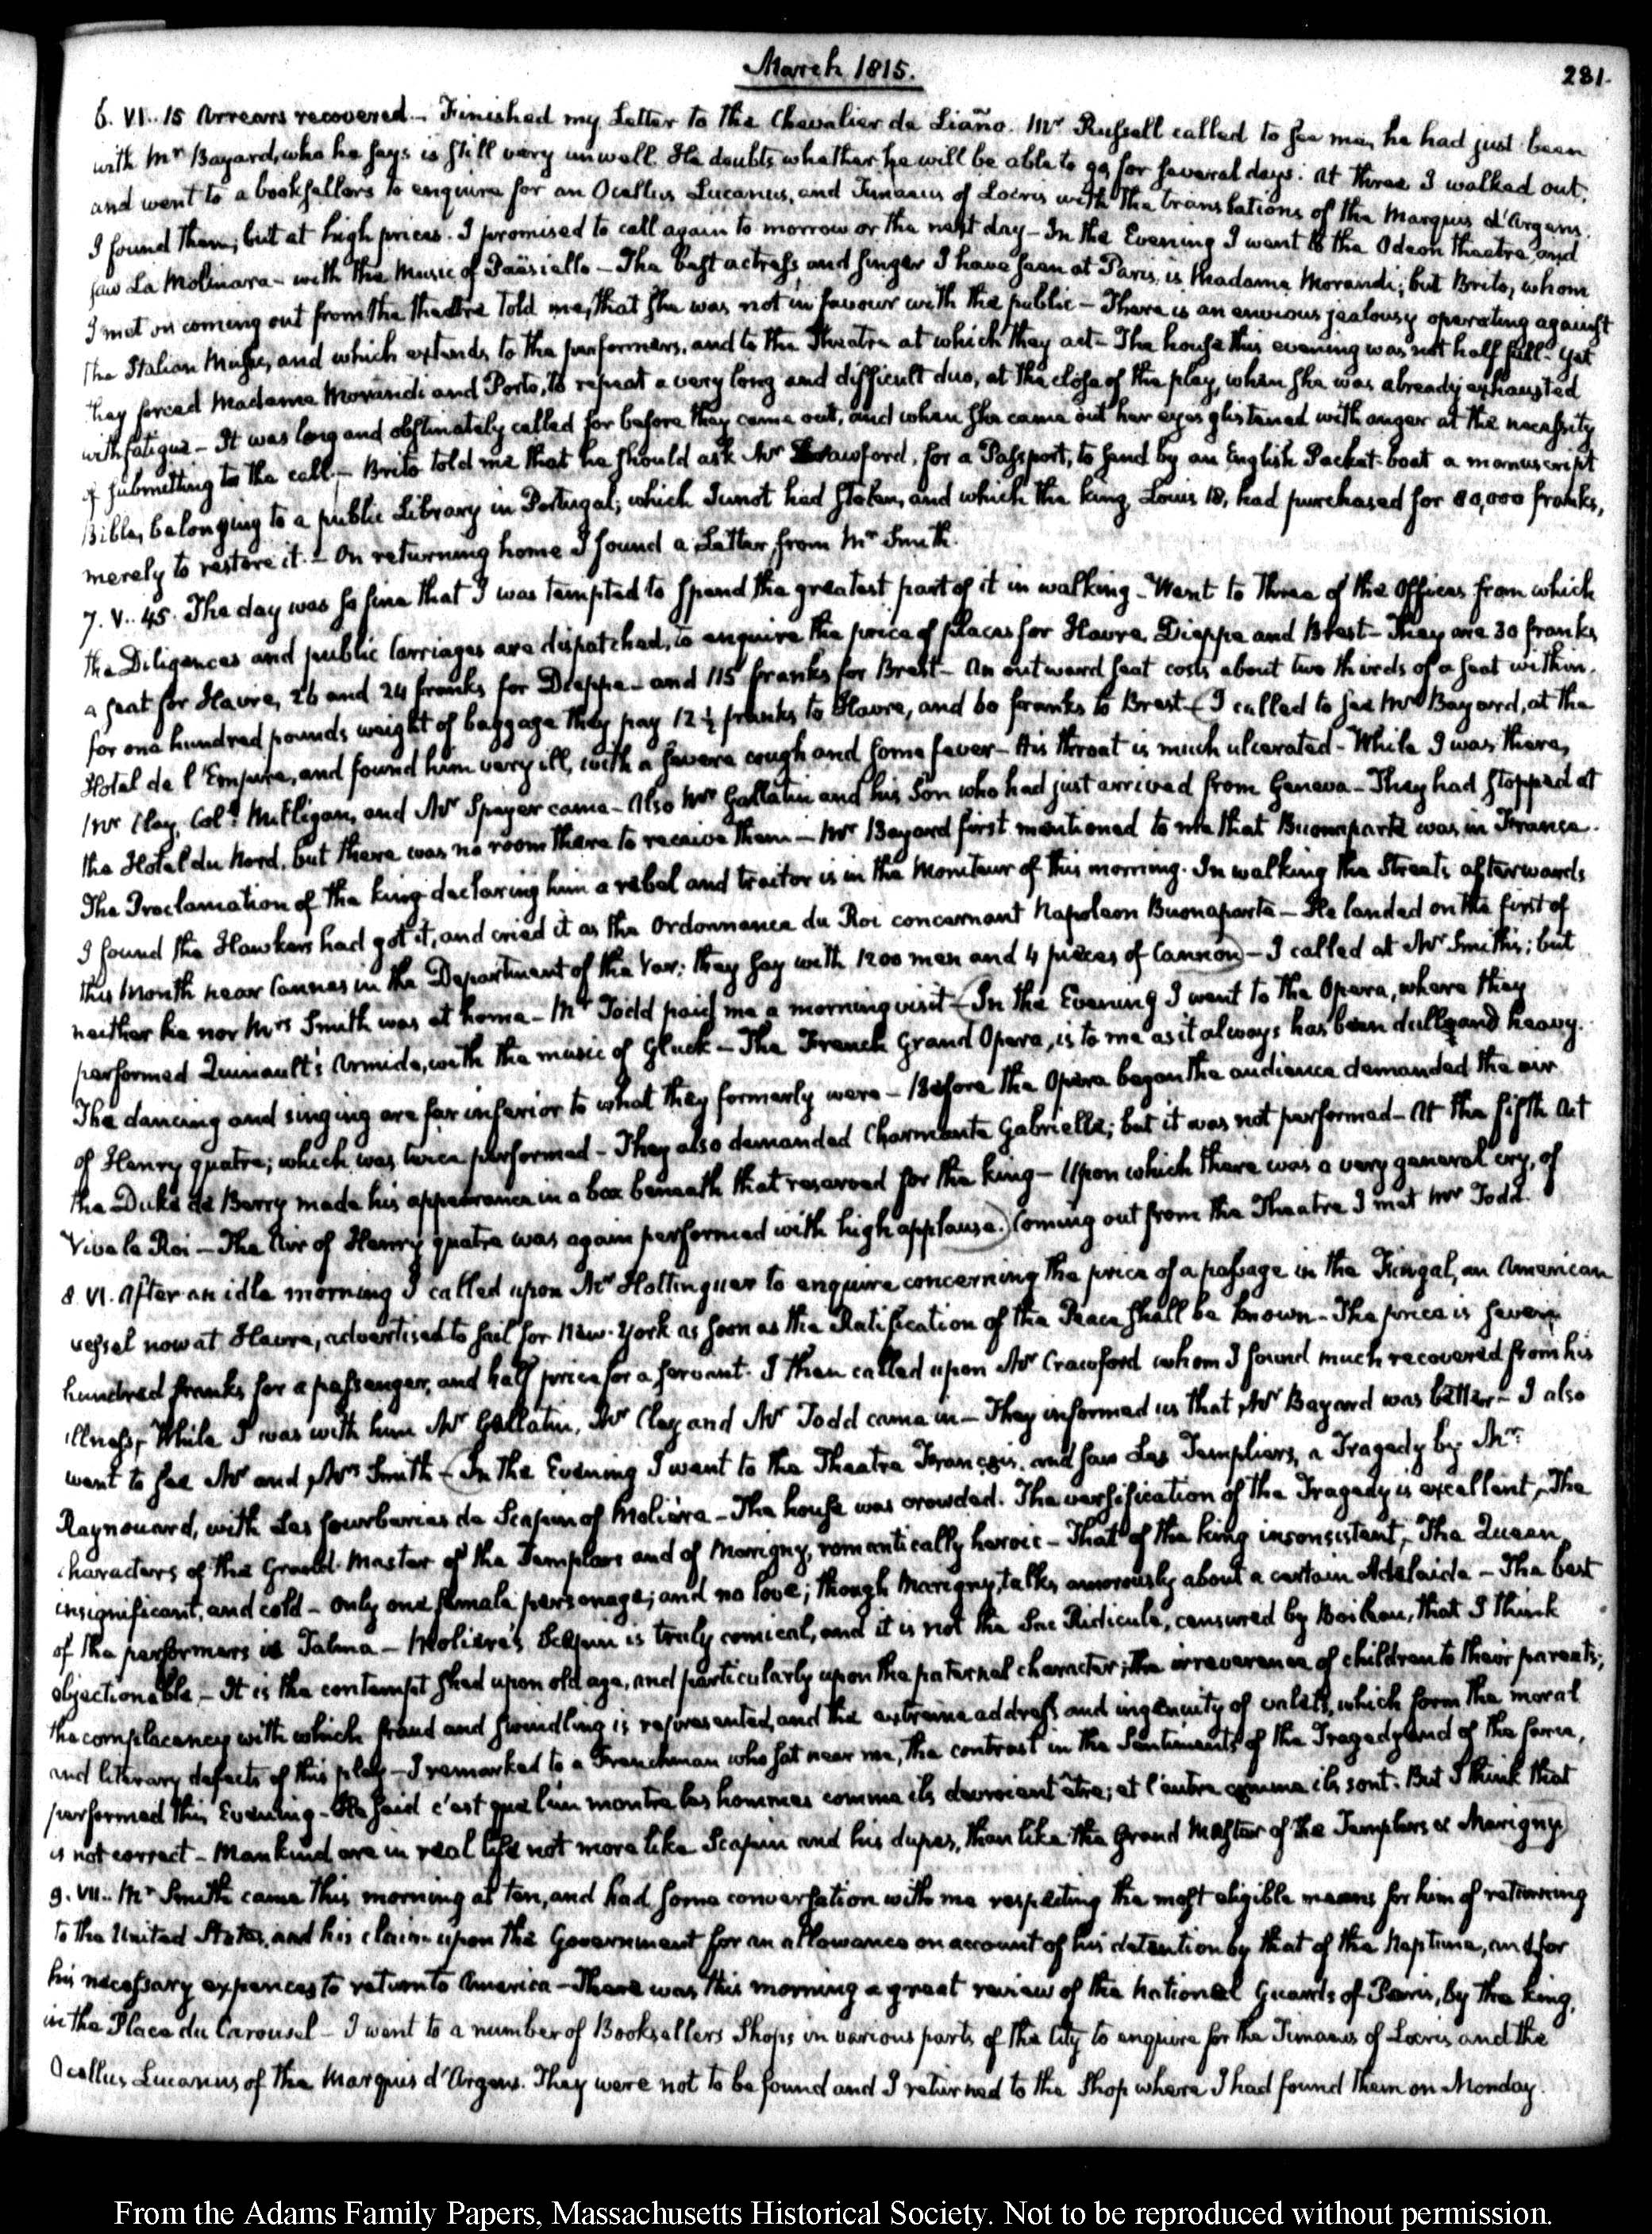 March 1815.
281.
6. VI.. 15 Arrears recovered.- Finished my Letter to the Chevalier de Liaño. Mr Russell called to see me, he had just been
with Mr Bayard, who he says is still very unwell. He doubts whether he will be able to go for several days. At three I walked out,
and went to a booksellers to enquire for an Ocellus Lucanus, and Timaeus of Locris with the translations of the Marquis d'Argens.
I found them, but at high prices. I promised to call again to morrow or the next day - In the Evening I went to the Odeon theatre, and
saw La Molinara - with the Music of Paësiello - The best actress, and singer I have seen at Paris, is Madame Morandi; but Brito, whom
I met on coming out from the theatre told me, that she was not in favour with the public - There is an envious jealousy operating against
the Italian Music, and which extends to the performers, and to the Theatre at which they act - The house this evening was not half full - Yet
they forced Madame Morandi and Porto, to repeat a very long and difficult duo, at the close of the play, when she was already exhausted
with fatigue - It was long and obstinately called for before they came out, and when she came out her eyes glistened with anger at the necessity
of submitting to the call. - Brito told me that he should ask Mr Crawford, for a Passport, to send by an English Packet-boat a manuscript
Bible, belonging to a public Library in Portugal; which Junot had stolen, and which the king, Louis 18, had purchased for 80,000 franks,
merely to restore it. - On returning home I found a Letter from Mr Smith.
7. V.. 45. The day was so fine that I was tempted to spend the greatest part of it in walking - Went to three of the Offices from which
the Diligences and public Carriages are dispatched, to enquire the price of places for Havre, Dieppe and Brest - They are 30 franks
a seat for Havre, 26 and 24 franks for Dieppe - and 115 franks for Brest - An outward seat costs about two thirds of a seat within.
for one hundred pounds weight of baggage they pay 12 ½ franks to Havre, and 60 franks to Brest - (I called to see Mr Bayard, at the
Hotel de l'Empire, and found him very ill, with a severe cough and some fever - His throat is much ulcerated - While I was there,
Mr Clay, Coll Milligan, and Mr Speyer came - Also Mr Gallatin and his Son who had just arrived from Geneva - They had stopped at
the Hotel du Nord, but there was no room there to receive them - Mr Bayard first mentioned to me that Buonaparte was in France.
The Proclamation of the king declaring him a rebel and traitor is in the Moniteur of this morning. In walking the Streets afterwards
I found the Hawkers had got it, and cried it as the Ordonnance du Roi concernant Napoleon Buonaparte - He landed on the first of
this Month near Cannes in the Department of the Var; they say with 1200 men and 4 pieces of Cannon) - I called at Mr Smith's; but
neither he nor Mrs Smith was at home - Mr Todd paid me a morning visit - (In the Evening I went to the Opera, where they
performed Quinault's Armide, with the music of Gluck - The French Grand Opera, is to me as it always has been dull and heavy.
The dancing and singing are far inferior to what they formerly were - Before the Opera began the audience demanded the air
of Henry quatre; which was twice performed - They also demanded Charmante Gabrielle; but it was not performed - At the fifth Act
the Duke de Berry made his appearance in a box beneath that reserved for the king - Upon which there was a very general cry, of
Vive le Roi - The Air of Henry quatre was again performed with high applause.) Coming out from the Theatre I met Mr Todd.
8. VI. After an idle morning I called upon Mr Hottinguer to enquire concerning the price of a passage in the Fingal, an American
vessel now at Havre, advertised to sail for New-York as soon as the Ratification of the Peace shall be known - The price is seven
hundred franks for a passenger, and half price for a servant. I then called upon Mr Crawford whom I found much recovered from his
illness, While I was with him Mr Gallatin, Mr Clay and Mr Todd came in - They informed us that Mr Bayard was better - I also
went to see Mr and Mrs Smith - (In the Evening I went to the Theatre Français, and saw Les Templiers, a Tragedy by Mr
Raynouard, with Les fourberies de Scapin of Moliére - The house was crowded. The versification of the Tragedy is excellent, The
characters of the Grand Master of the Templars and of Marigny, romantically heroic - That of the king inconsistent, The Queen
insignificant, and cold - Only one female personage; and no love; though Marigny talks amorously about a certain Adelaide - The best
of the performers is Talma - Moliére's Scapin is truly comical, and it is not the Sac Ridicule, censured by Boileau, that I think
objectionable - It is the contempt shed upon old age, and particularly upon the paternal character; the irreverence of children to their parents;
the complacency with which fraud and swindling is represented, and the extreme address and ingenuity of valets, which form the moral
and literary defects of this play - I remarked to a Frenchman who sat near me, the contrast in the Sentiments of the Tragedy and of the farce,
performed this Evening - He said c'est que l'un montre les hommes comme ils devroient être; et l'autre comme ils sont. But I think that
is not correct - Mankind are in real life not more like Scapin and his dupes, than like the Grand Master of the Templars or Marigny)
9. VII.. Mr Smith came this morning at ten, and had some conversation with me respecting the most eligible means for him of returning
to the United States, and his claim upon the Government for an allowance on account of his detention by that of the Neptune, and for
his necessary expences to return to America - There was this morning a great review of the National Guards of Paris, by the king,
in the Place du Carousel - I went to a number of Booksellers Shops in various parts of the City to enquire for the Timaeus of Locris and the
Ocellus Lucanus of the Marquis d'Argens. They were not to be found and I returned to the Shop where I had found them on Monday.
From the Adams Family Papers, Massachusetts Historical Society. Not to be reproduced without permission.